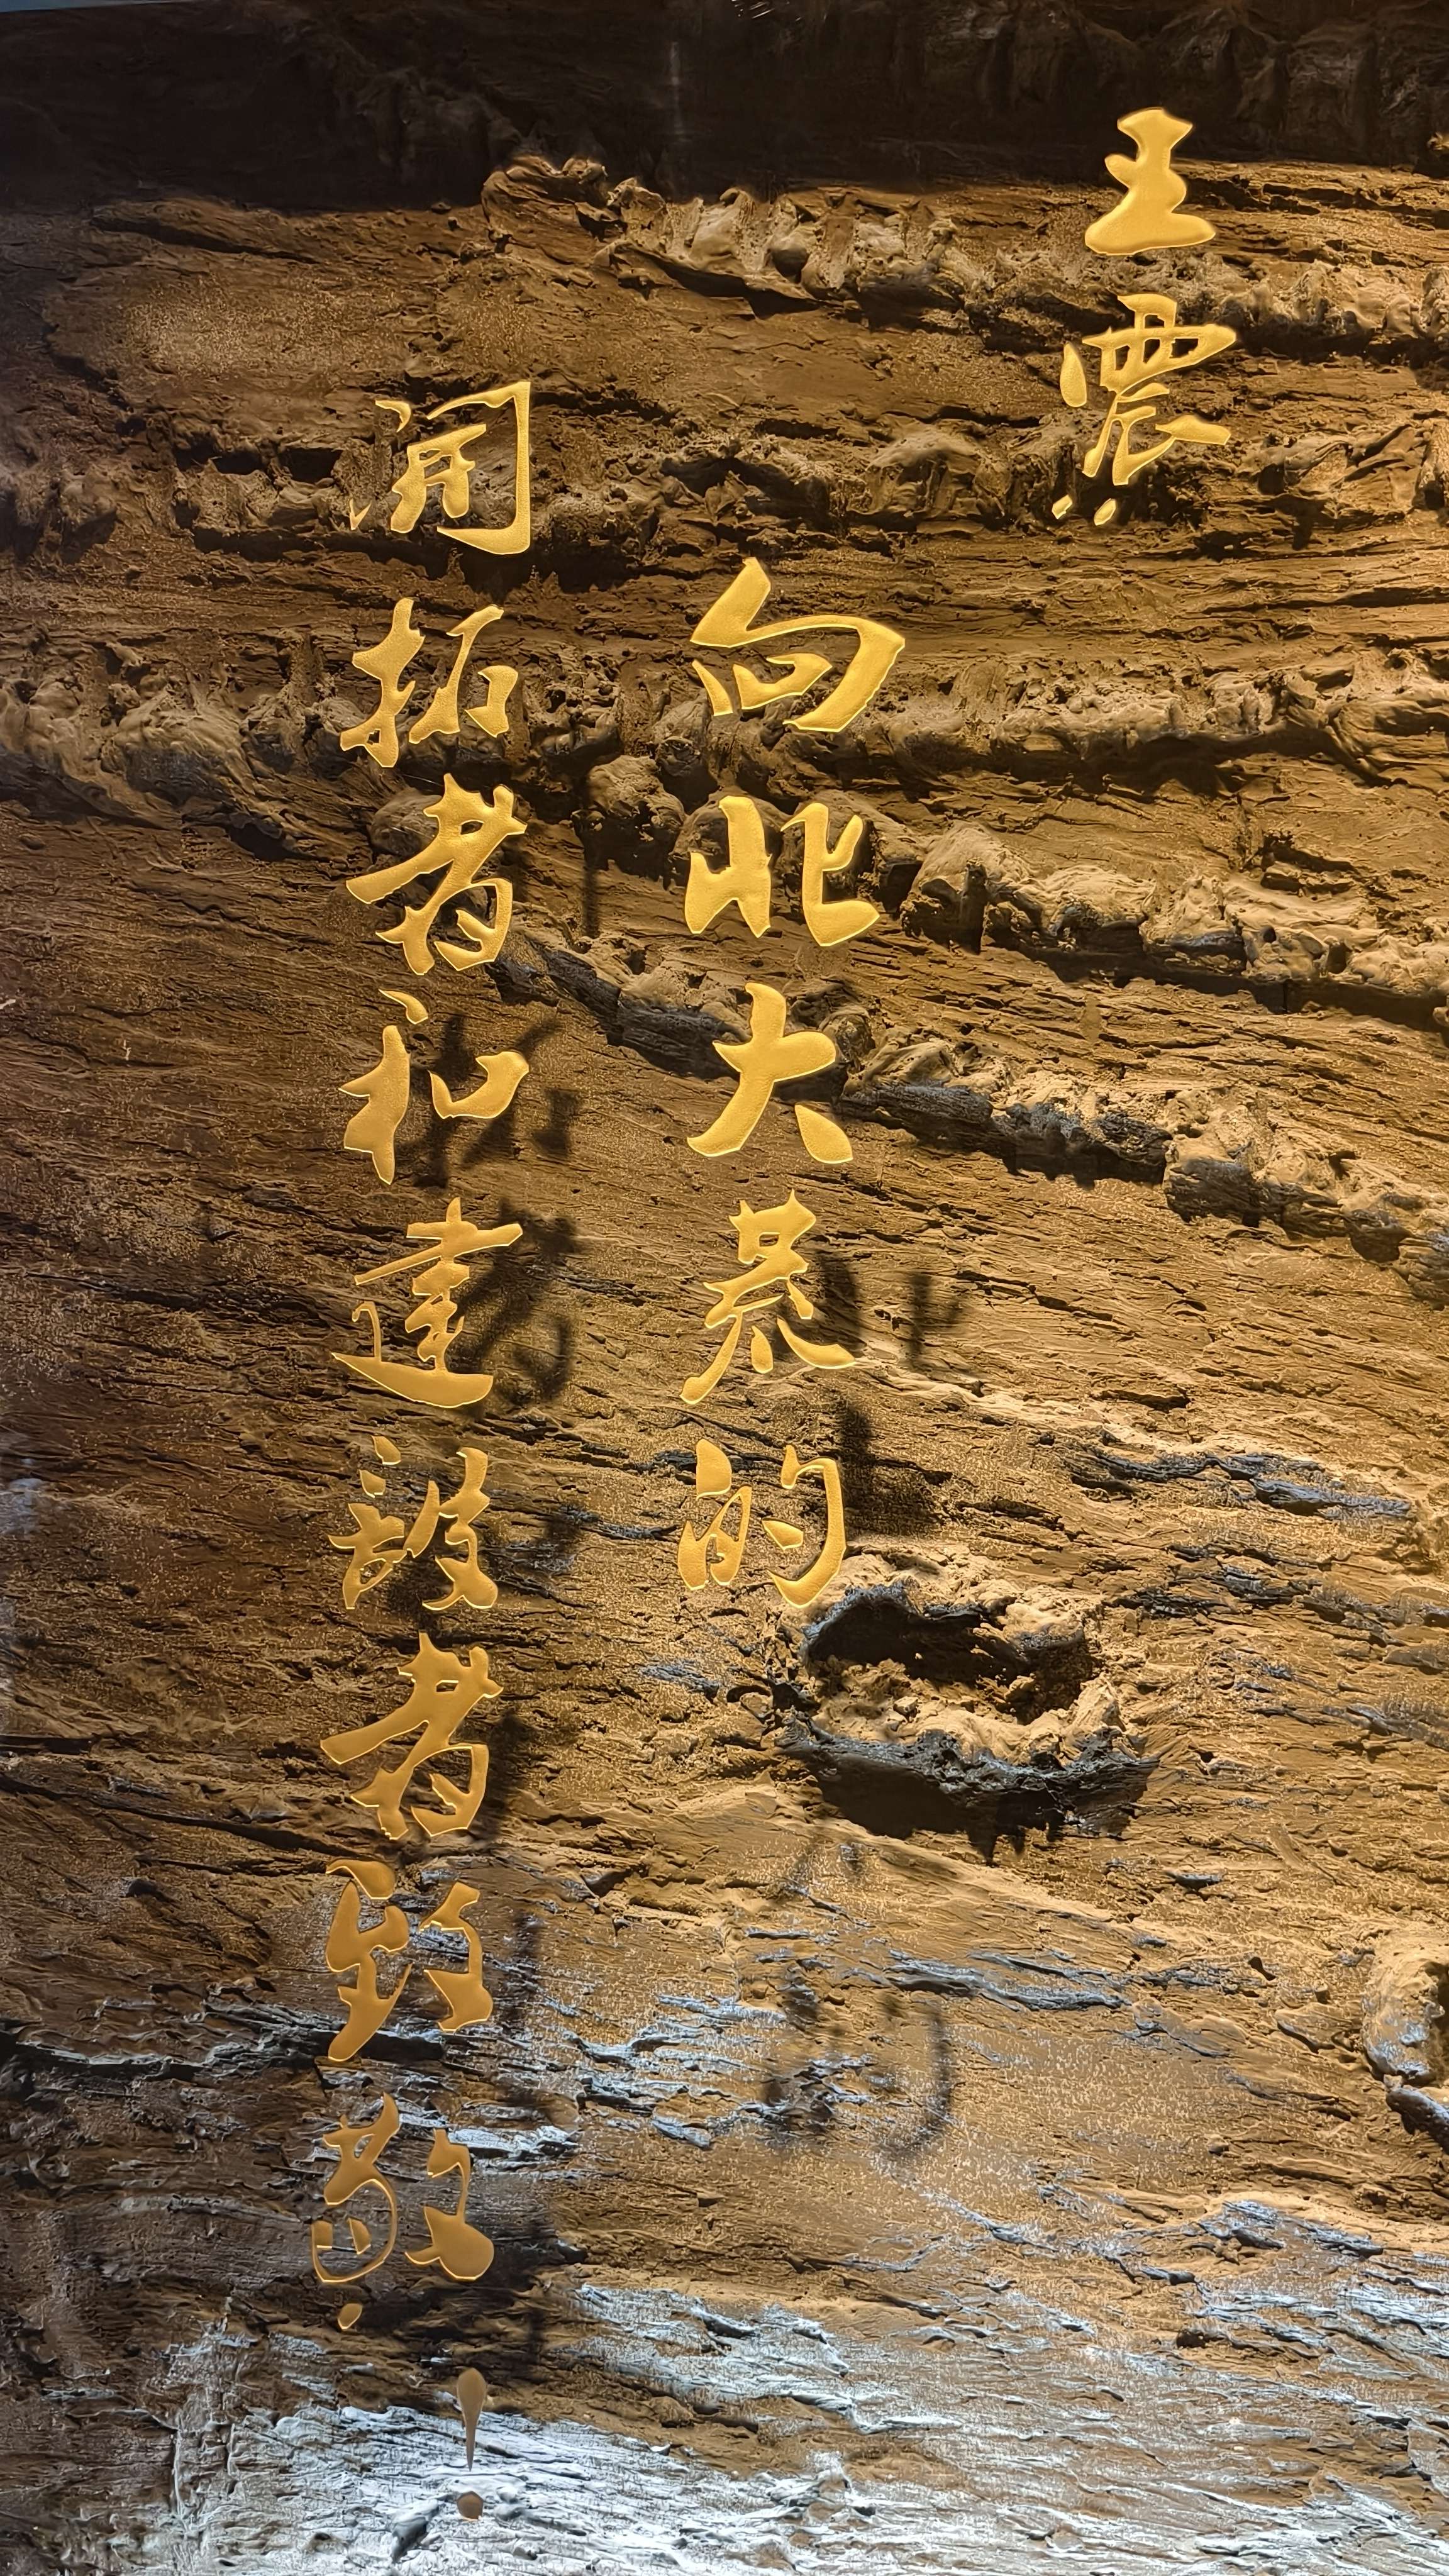 王震：
向北大荒的
開拓者和建設者致敬！